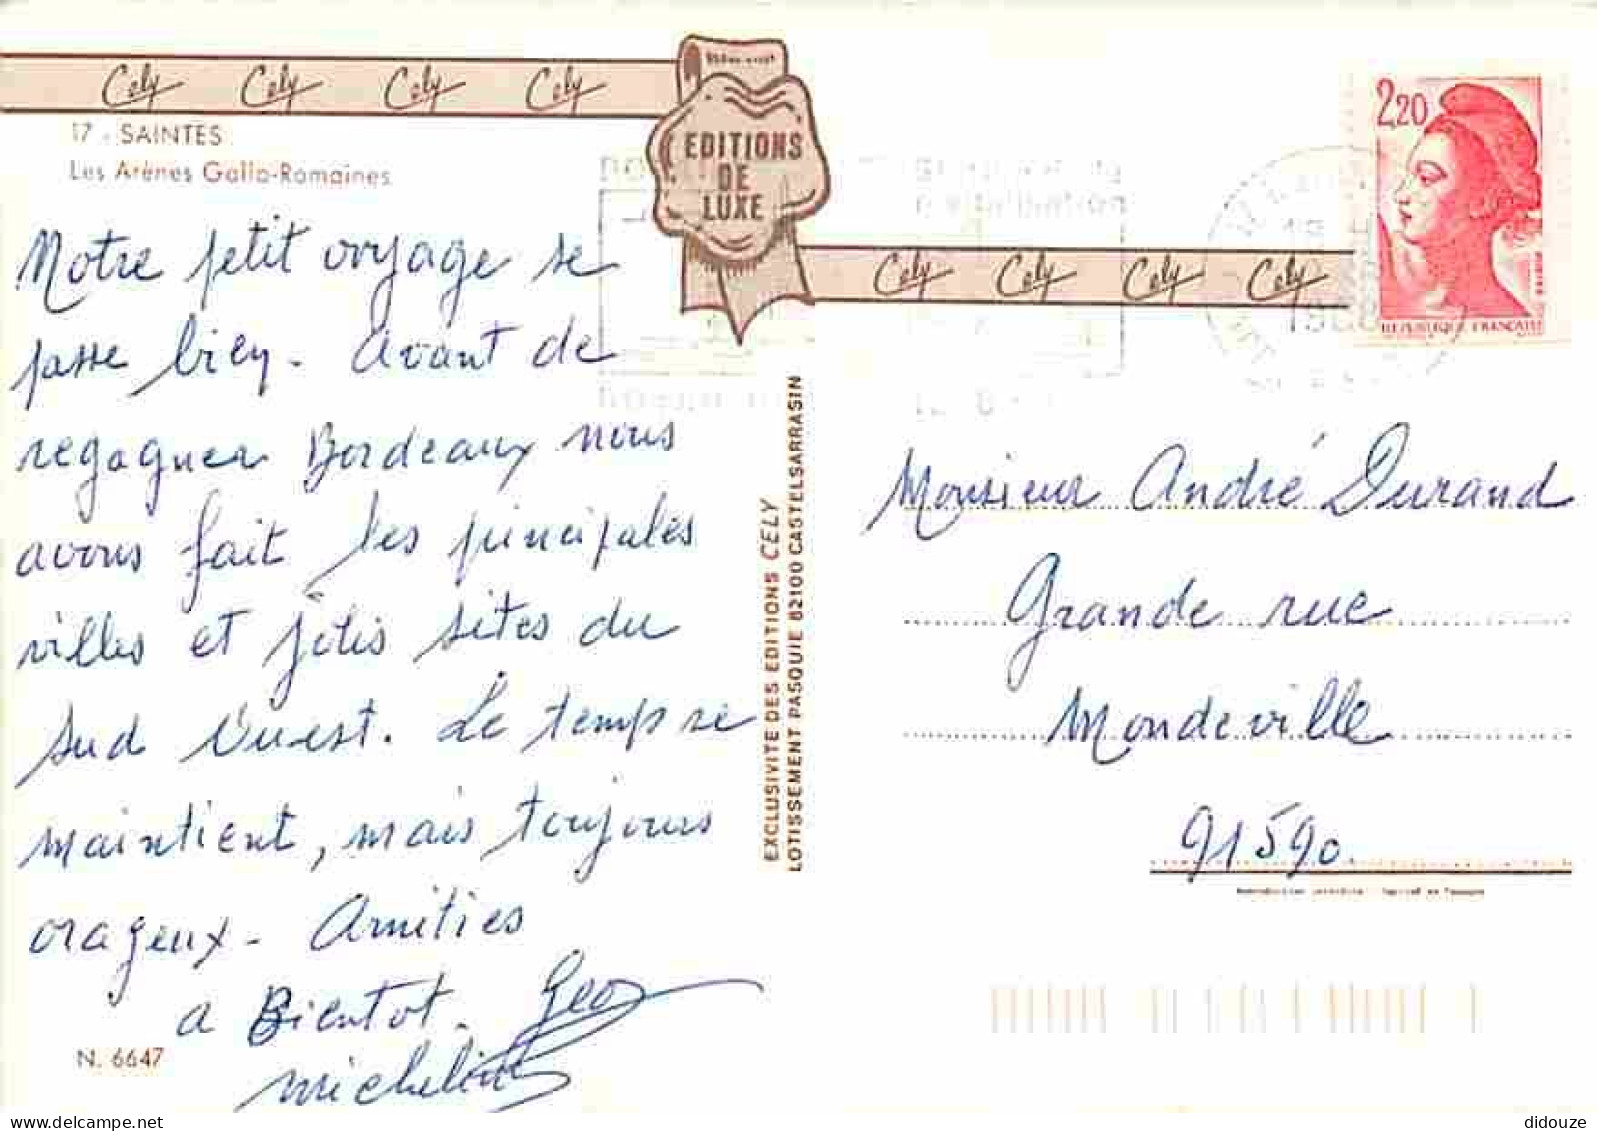 Cely Cely Cely Cely
EDITIONS
DE
LUXE
17 - SAINTES
Les Arènes Gallo-Romaines
Cely Cely Cely Cely
2,20
REPUBLIQUE FRANÇAISE
Notre petit voyage se
passe bien. Avant de
regagner Bordeaux nous
avons fait les principales
villes et jolis sites du
Sud Ouest. Le temps se
maintient, mais toujours
orageux - Amitiés
a Bientot. Geo
Micheline
N. 6647
EXCLUSIVITE DES EDITIONS CELY
LOTISSEMENT PASQUIE 82100 CASTELSARRASIN
Monsieur André Durand
Grande rue
Mondeville
91590
didouze